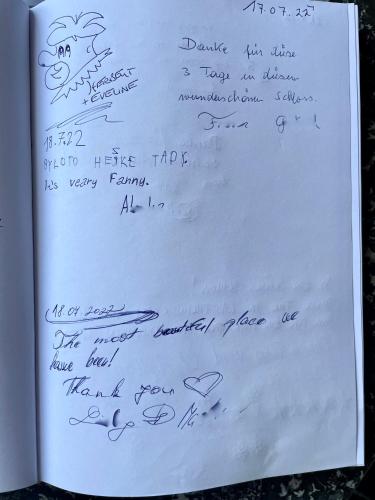 17.07.22
HERBERT
+ EVELINE
Danke für diese
3 Tage in diesem
wunderschönen Schloss.
18.7.22
BYŁOTO HEŠKE TADY.
It's veary Fanny.
(18.07.2022)
The most beautiful place we
have been!
Thank you